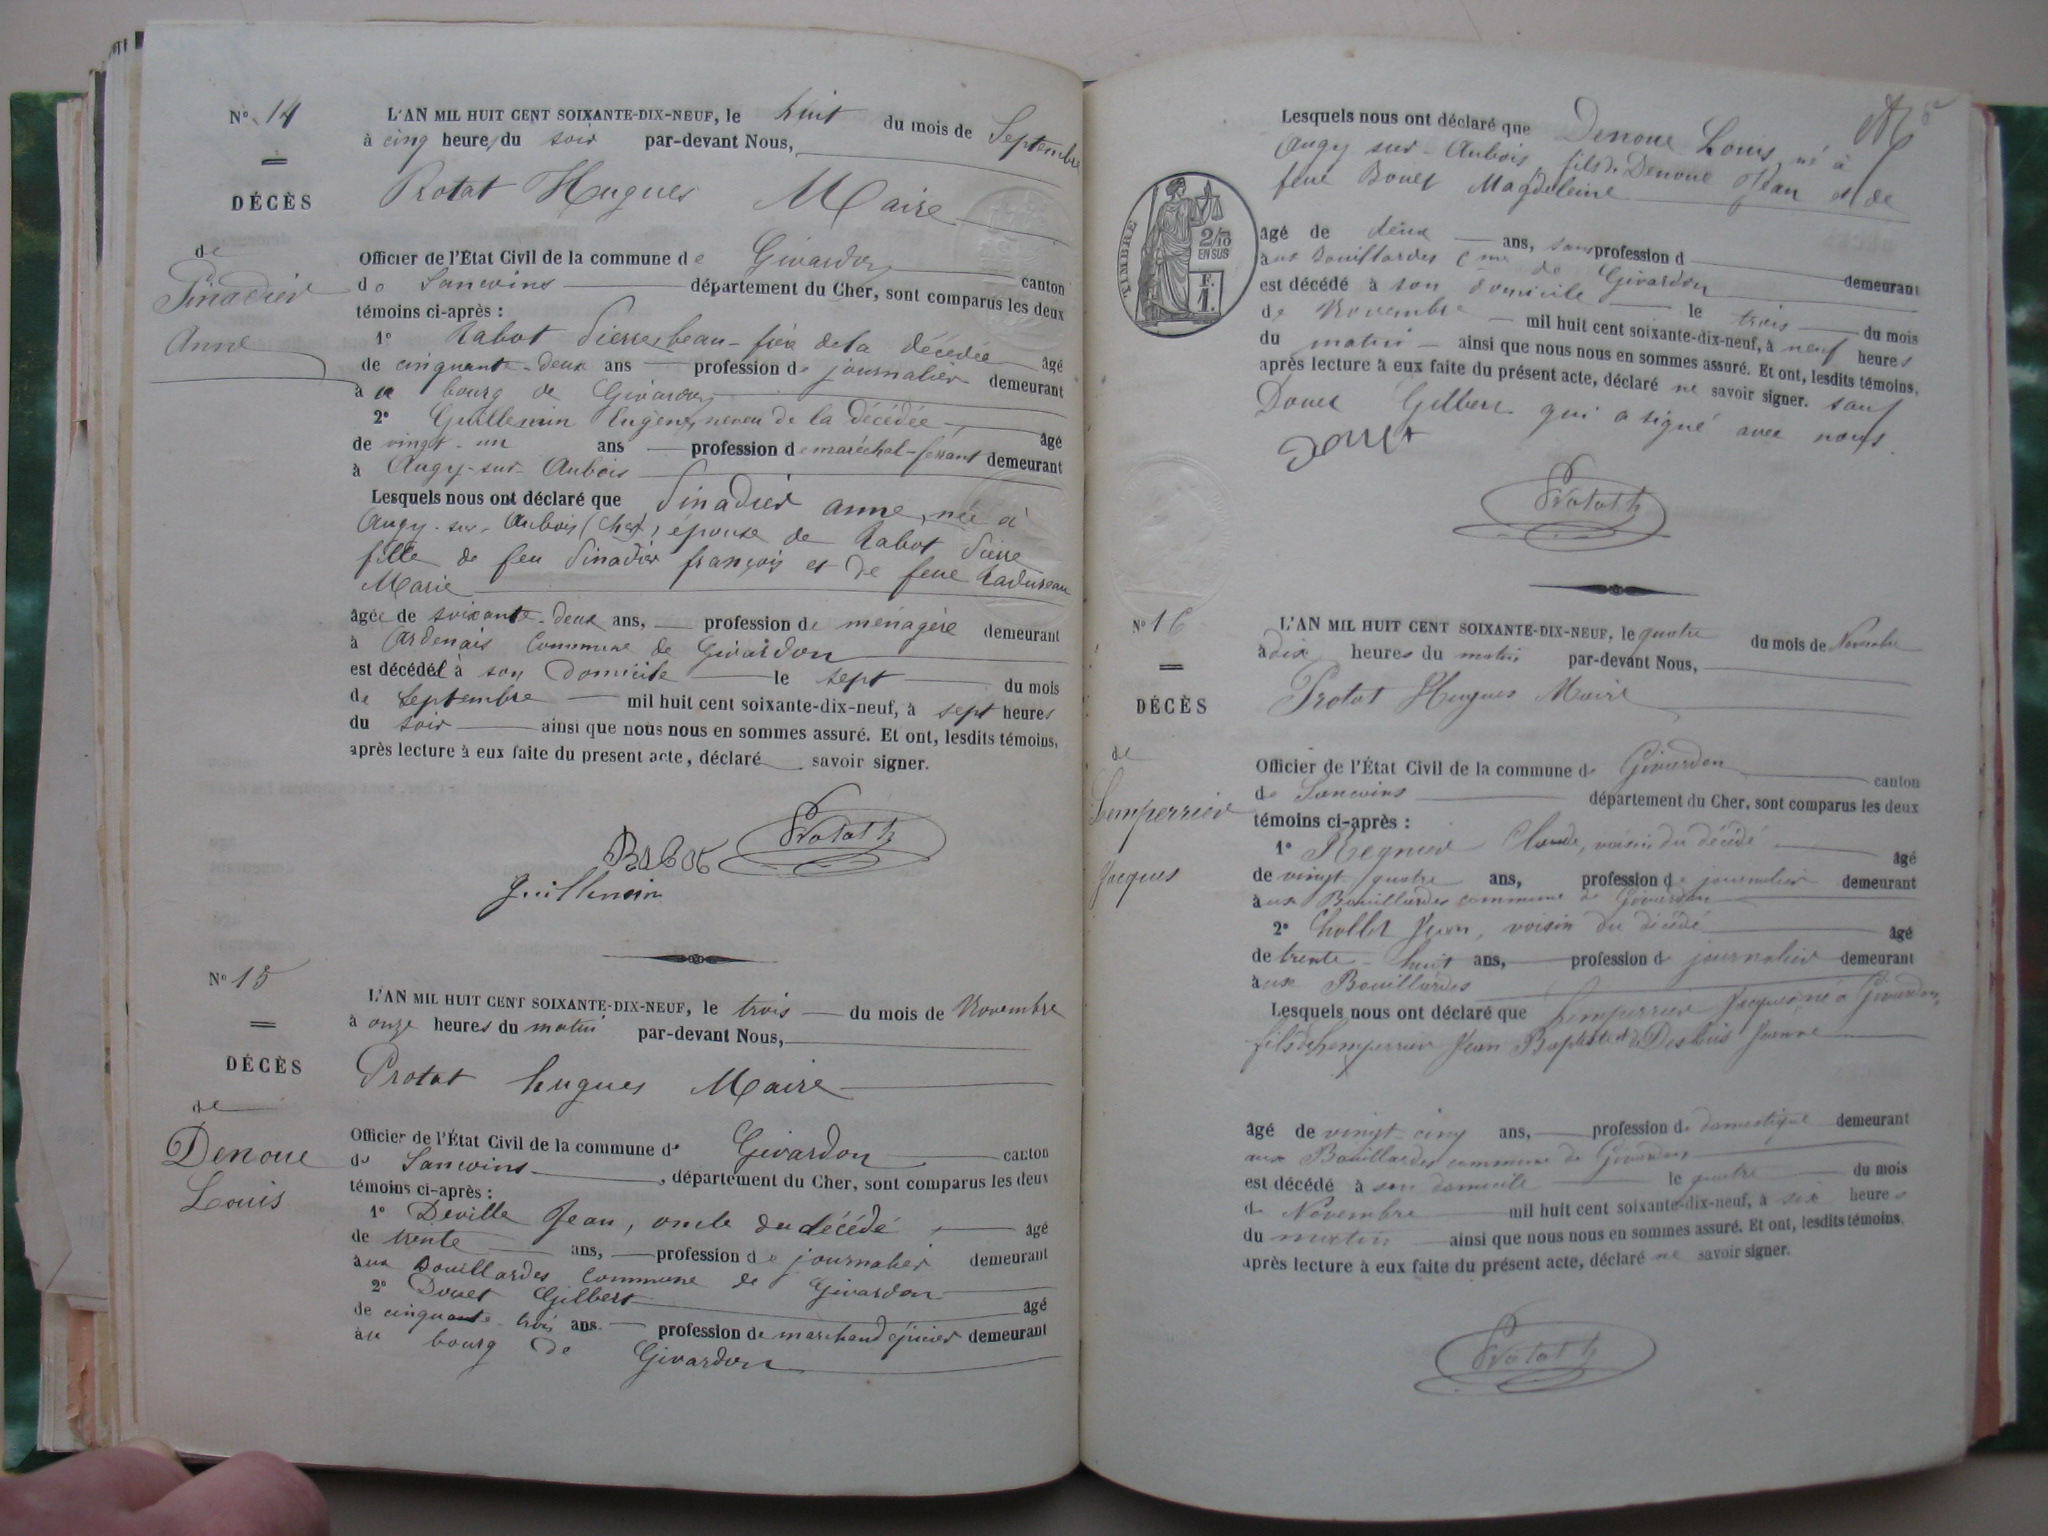 N° 14
L'AN MIL HUIT CENT SOIXANTE-DIX-NEUF, le huit du mois de Septembre
à cinq heures du soir par-devant Nous,
Protat Hugues Maire
DÉCÈS
de
Pinadier
Anne
Officier de l'État Civil de la commune de Givardon canton
de Sancoins département du Cher, sont comparus les deux
témoins ci-après :
1° Rabot Pierre, beau-frère de la décédée âgé
de cinquante-deux ans profession de journalier demeurant
à u bourg de Givardon
2° Guillemin Eugène, neveu de la décédée, âgé
de vingt-un ans profession de maréchal-ferrant demeurant
à Augy-sur-Aubois
Lesquels nous ont déclaré que Pinadier anne, née à
Augy-sur-Aubois (Cher), épouse de Rabot Pierre
fille de feu Pinadier françois et de feue Radureau
Marie
âgée de soixante-deux ans, profession de ménagère demeurant
à Ardenais Commune de Givardon
est décédée à son domicile le sept du mois
de Septembre mil huit cent soixante-dix-neuf, à sept heures
du soir ainsi que nous nous en sommes assuré. Et ont, lesdits témoins,
après lecture à eux faite du present acte, déclaré savoir signer.
Rabot Protat h
Guillemin
N° 15
L'AN MIL HUIT CENT SOIXANTE-DIX-NEUF, le trois du mois de Novembre
à onze heures du matin par-devant Nous,
DÉCÈS
Protat hugues Maire
de
Denoue
Louis
Officier de l'État Civil de la commune de Givardon canton
de Sancoins, département du Cher, sont comparus les deux
témoins ci-après :
1° Deville Jean, oncle du décédé, âgé
de trente ans, profession de journalier demeurant
aux Bouillardes Commune de Givardon
2° Douet Gilbert âgé
de cinquante trois ans profession de marchand épicier demeurant
à u bourg de Givardon
Lesquels nous ont déclaré que Denoue Louis, né à
Augy-sur-Aubois, fils de Denoue Jean et de
feue Bouet Magdeleine
TIMBRE
2/10
EN SUS
F.
1.
âgé de deux ans, sans profession d demeurant
aux Bouillardes Cne de Givardon
est décédé à son domicile le trois du mois
de Novembre mil huit cent soixante-dix-neuf, à neuf heures
du matin ainsi que nous nous en sommes assuré. Et ont, lesdits témoins,
après lecture à eux faite du présent acte, déclaré ne savoir signer. sauf
Douet Gilbert qui a signé avec nous.
Douet
Protat h
N° 16
L'AN MIL HUIT CENT SOIXANTE-DIX-NEUF, le quatre du mois de Novembre
à dix heures du matin par-devant Nous,
Protat Hugues Maire
DÉCÈS
de
Lemperrier
Jacques
Officier de l'État Civil de la commune de Givardon canton
de Sancoins département du Cher, sont comparus les deux
témoins ci-après :
1° Regnier Claude, voisin du décédé âgé
de vingt quatre ans, profession de journalier demeurant
à ux Bouillardes commune de Givardon
2° Chollet Jean, voisin du décédé âgé
de trente-huit ans, profession de journalier demeurant
à ux Bouillardes
Lesquels nous ont déclaré que Lemperrier Jacques, né à Givardon,
fils de Lemperrier Jean Baptiste et de Desbuis Jeanne
âgé de vingt-cinq ans, profession de domestique demeurant
aux Bouillardes commune de Givardon
est décédé à son domicile le quatre du mois
de Novembre mil huit cent soixante-dix-neuf, à six heures
du matin ainsi que nous nous en sommes assuré. Et ont, lesdits témoins,
après lecture à eux faite du présent acte, déclaré ne savoir signer.
Protat h